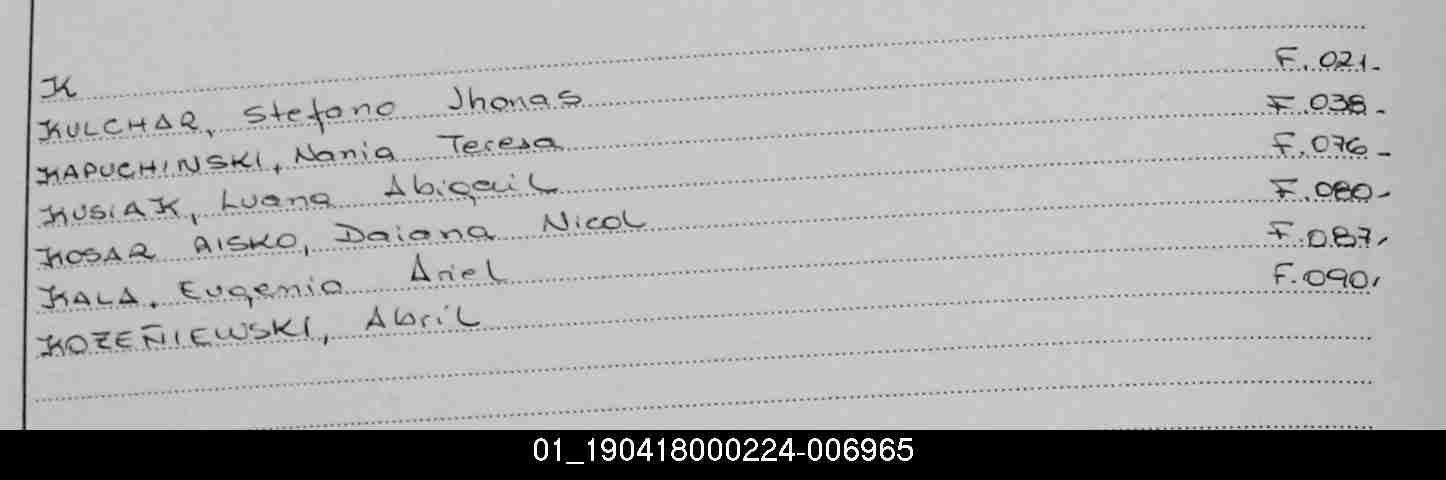 K
KULCHAR, Stefano Jhonas F. 021.
KAPUCHINSKI, Nania Teresa F. 038.
KUSIAK, Luana Abigail F. 076.
KOSAR AISKO, Daiana Nicol F. 080.
KALA, Eugenia Ariel F. 087.
KOZEÑIEWSKI, Abril F. 090.
01_190418000224-006965